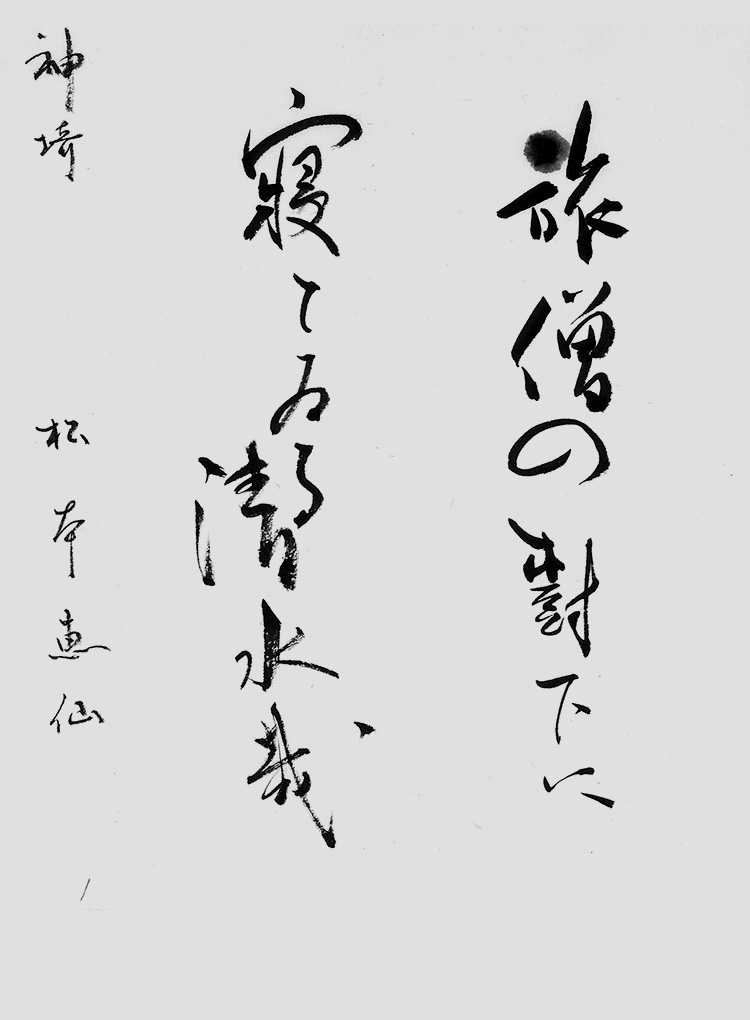 旅僧の樹下に
寝てゐる清水哉
神埼 松本恵仙